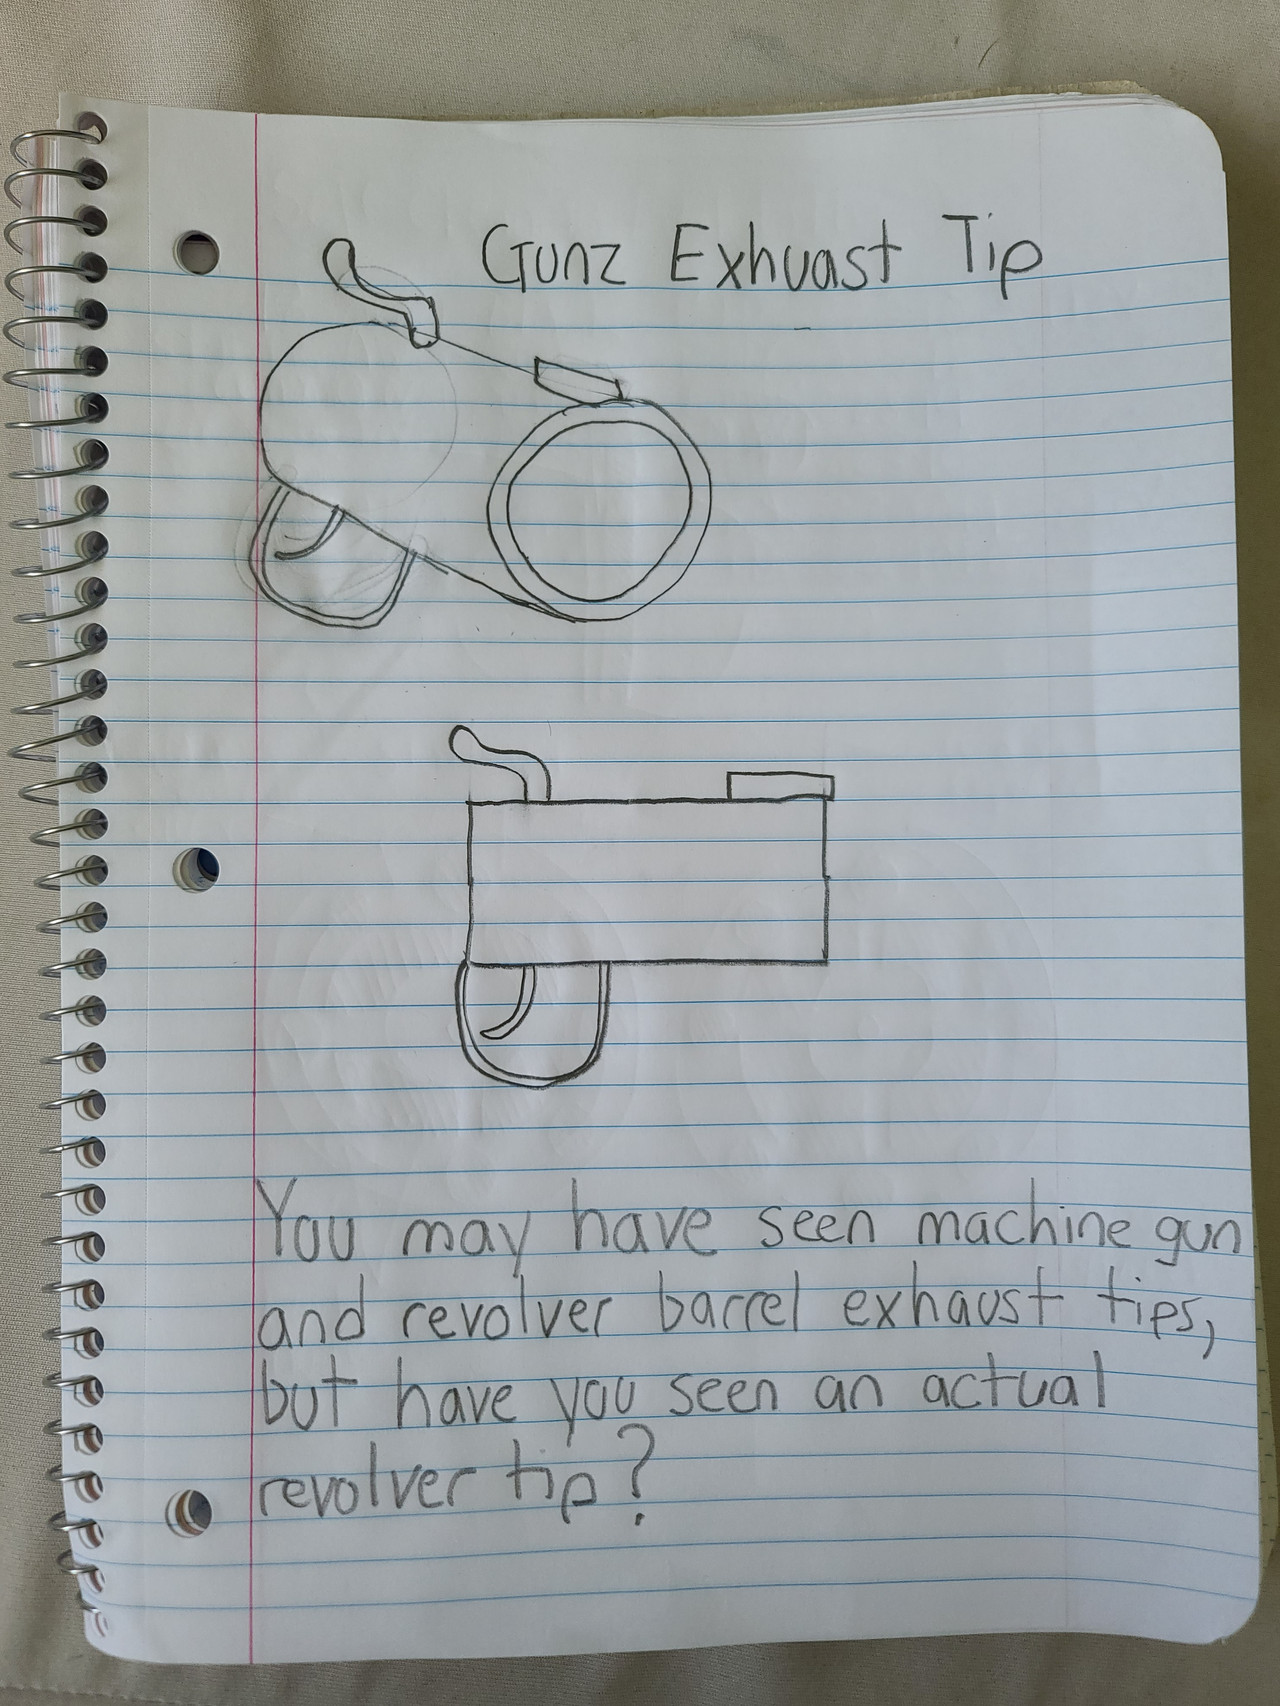 Gunz Exhuast Tip
You may have seen machine gun
and revolver barrel exhaust tips,
but have you seen an actual
revolver tip?